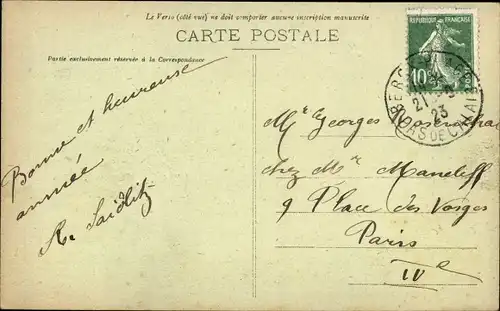 Le Verso (côté vue) ne doit comporter aucune inscription manuscrite
CARTE POSTALE
Partie exclusivement réservée à la Correspondance
REPUBLIQUE FRANÇAISE
10
POSTES
BERCK
21
23
PAS DE CALAIS
Bonne et heureuse
année
Mr Georges Rosenthal
chez Mr
9 Place des Vosges
Paris
IVe